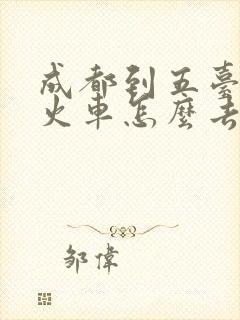 成都到五臺
火車怎麼去
邹偉